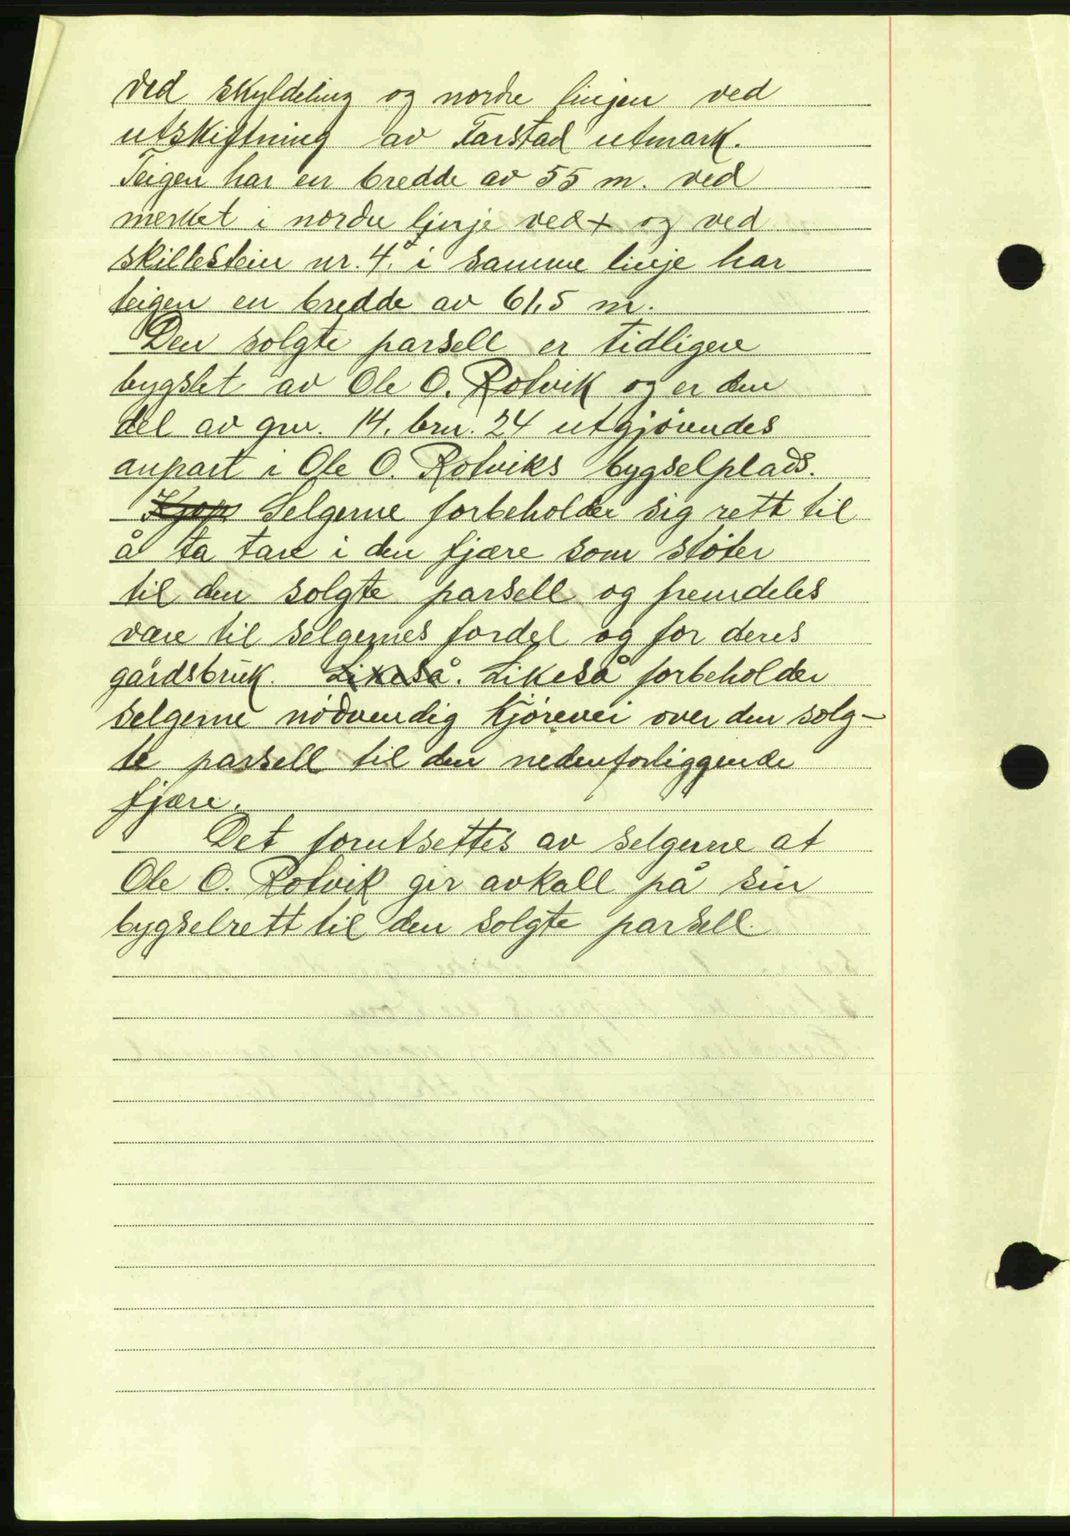 ved skyldeling og nordre linjen ved
utskiftning av Tarstad utmark.
Teigen har en bredde av 55 m. ved
merket i nordre linje ved + og ved
skillestein nr. 4. i samme linje har
teigen en bredde av 61,5 m.
Den solgte parsell er tidligere
bygslet av Ole O. Rotvik og er den
del av gnr. 14, brn. 24 utgjørendes
anpart i Ole O. Rotviks bygselplads.
Kjøp Selgerne forbeholder sig rett til
å ta tare i den fjære som støter
til den solgte parsell og fremdeles
være til selgernes fordel og for deres
gårdsbruk. Likeså. Likeså forbeholder
selgerne nødvendig kjørevei over den solg-
te parsell til den nedenforliggende
fjære.
Det forutsettes av selgerne at
Ole O. Rotvik gir avkall på sin
bygselrett til den solgte parsell.